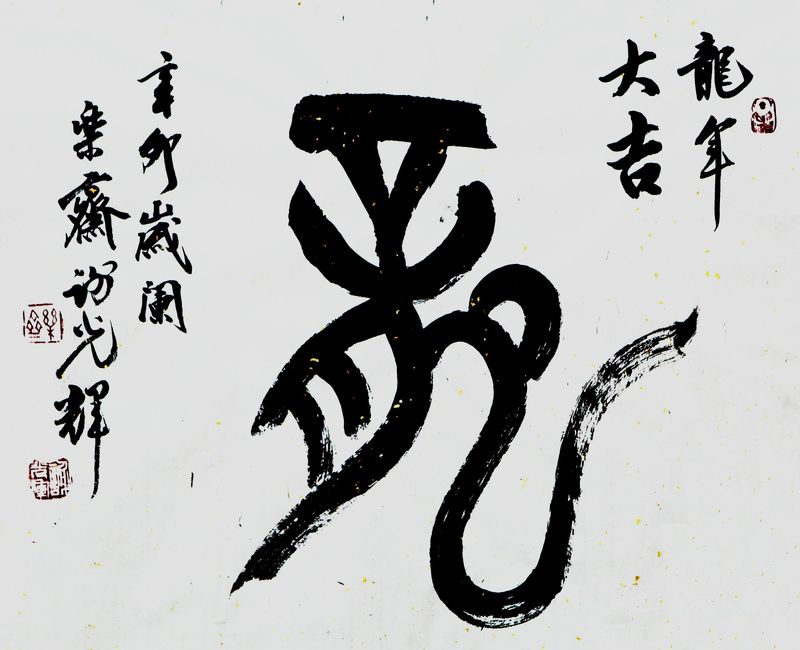 龍年
大吉
龍
辛卯歲闌
楽齋謝光輝